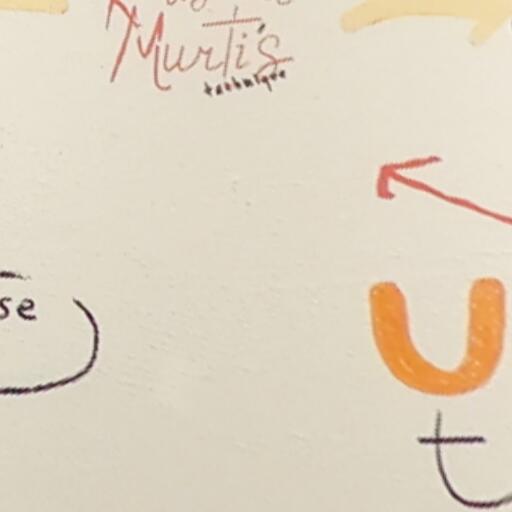 Murti's
technique
se
U
t